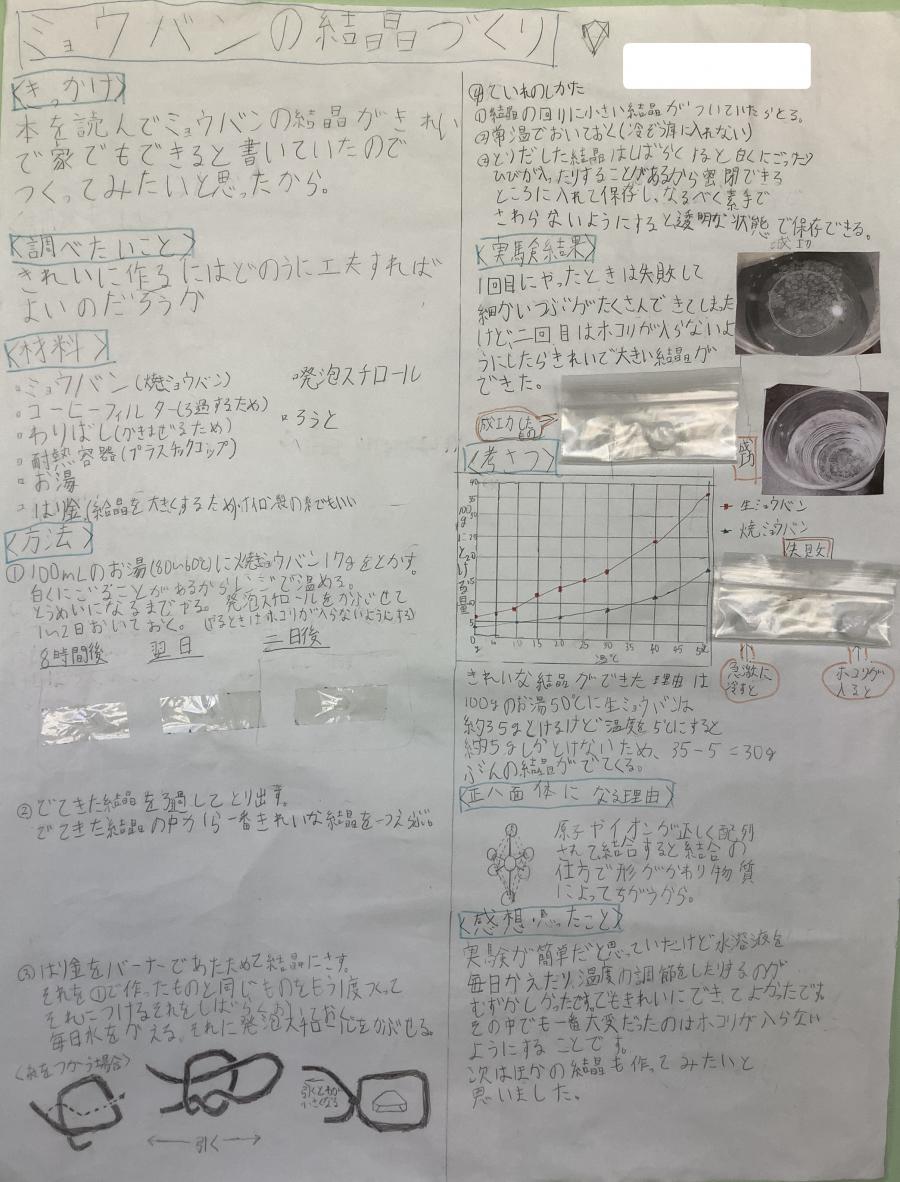 ミョウバンの結晶づくり
<きっかけ>
本を読んでミョウバンの結晶がきれい
で家でもできると書いていたので
つくってみたいと思ったから。
<調べたいこと>
きれいに作るにはどのうに工夫すれば
よいのだろうか
<材料>
・ミョウバン(焼ミョウバン)
・発泡スチロール
・コーヒーフィルター(ろ過するため)
・ろうと
・わりばし(かきまぜるため)
・耐熱容器(プラスチックコップ)
・お湯
・はり金(結晶を大きくするため,ナイロン製の糸でもいい
<方法>
①100mLのお湯(80〜60℃)に焼ミョウバン17gをとかす。
白くにごることがあるからレンジで温める。
とうめいになるまでやる。発泡スチロールをかぶせて
1〜2日おいておく。(やるときはホコリが入らないようにする)
8時間後 翌日 二日後
②でてきた結晶をろ過してとり出す。
でてきた結晶の中から一番きれいな結晶を一つえらぶ。
③はり金をバーナーであたためて結晶にさす。
それを①で作ったものと同じものをもう1度つくって
それにつけるそれをしばらくおいておく。
毎日水をかえる。それに発泡スチロールをかぶせる。
<糸をつかう場合>
引く
引くとわが
小さくなる
④ていれのしかた
①結晶の回りに小さい結晶がついていたらとる。
②常温でおいておく(冷ぞう庫に入れない)
③とりだした結晶はしばらくすると白くにごったり
ひびが入ったりすることがあるから密閉できる
ところに入れて保存し、なるべく素手で
さわらないようにすると透明な状態で保存できる。
<実験結果>
成功
1回目にやったときは失敗して
細かいつぶがたくさんできてしまった
けど、二回目はホコリが入らないよ
うにしたらきれいで大きい結晶が
できた。
成功した
もの
成功
<考さつ>
100gにとける量
40
35
30
25
20
15
10
5
0 5 10 15 20 25 30 35 40 45 50
温℃
生ミョウバン
焼ミョウバン
失敗
急激に
冷すと
ホコリが
入ると
きれいな結晶ができた理由は
100gのお湯50℃に生ミョウバンは
約35gとけるけど温度を5℃にすると
約5gしかとけないため、35-5=30g
ぶんの結晶がでてくる。
正八面体になる理由
原子やイオンが正しく配列
されて、結合すると結合の
仕方で形がかわり物質
によってちがうから。
<感想・思ったこと>
実験が簡単だと思っていたけど水溶液を
毎日かえたり、温度の調節をしたりするのが
むずかしかったです。でもきれいにできてよかったです。
その中でも一番大変だったのはホコリが入らない
ようにすることです。
次はほかの結晶も作ってみたいと
思いました。